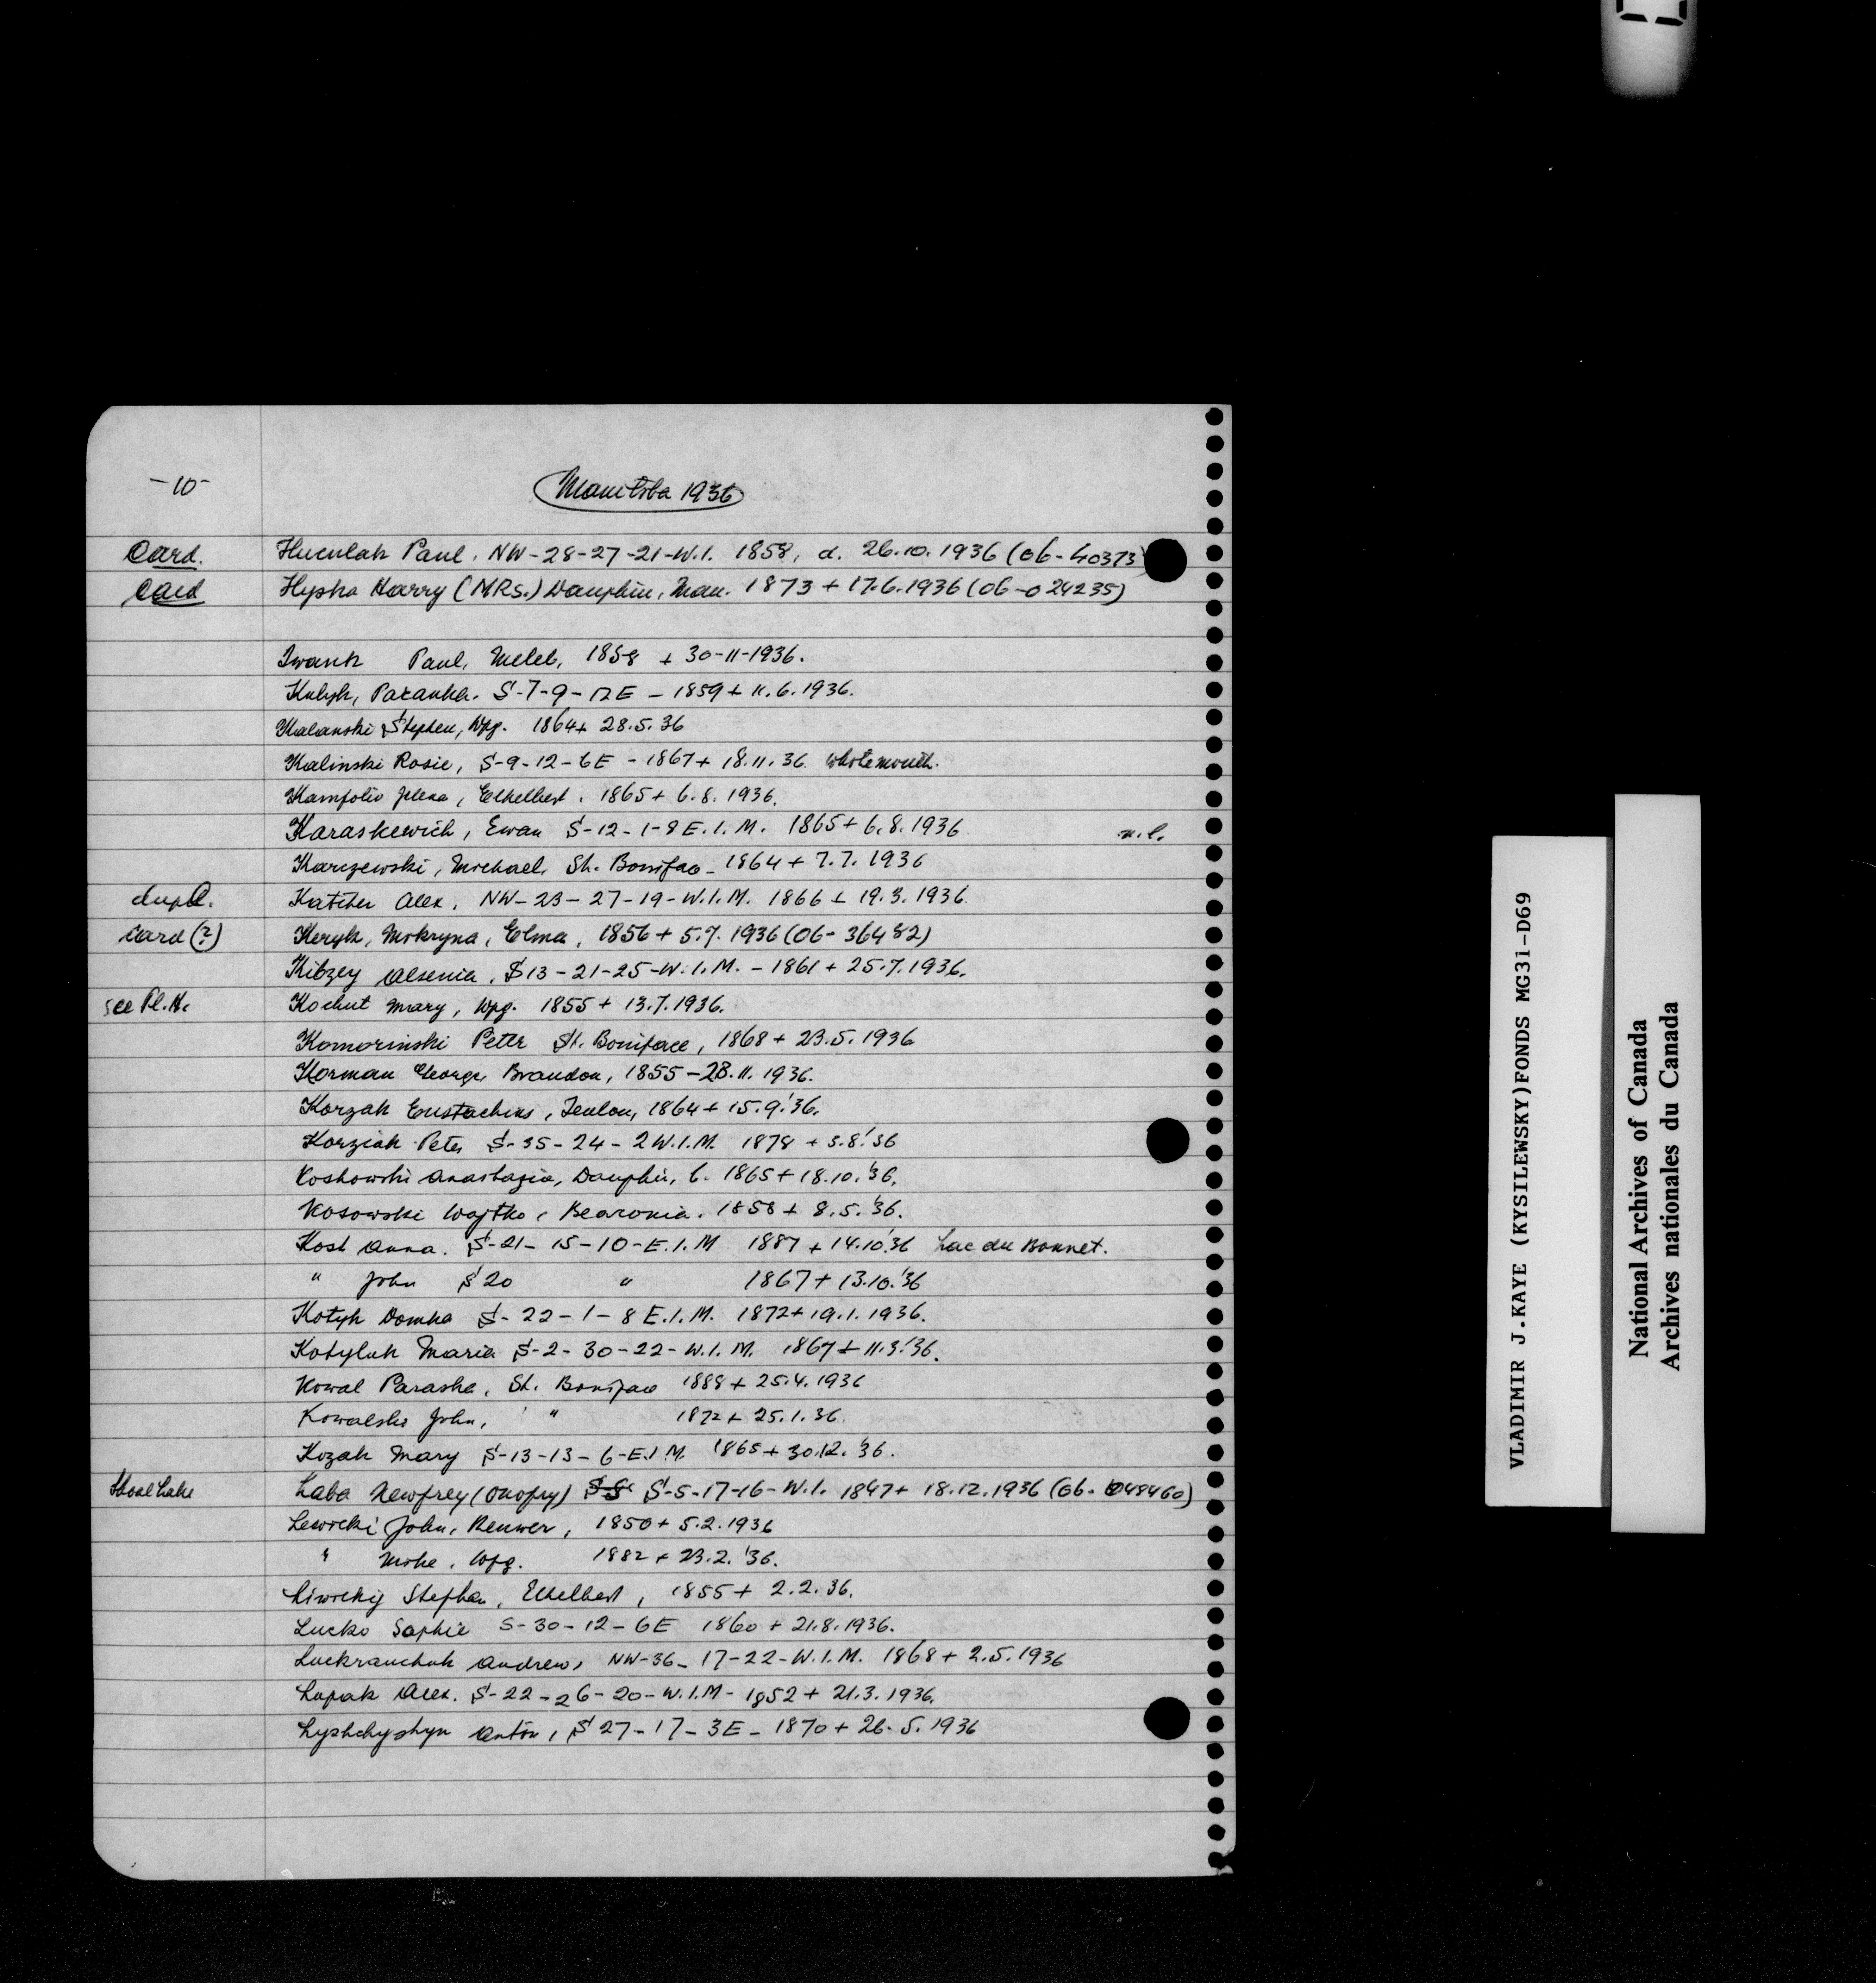 -10-
Manitoba 1936
Card. Huculak Paul. NW-28-27-21-W.1. 1858, d. 26.10.1936 (06-40373)
Card Hypka Harry (MRS.) Dauphin, Man. 1873 + 17.6.1936 (06-024235)
Iwank Paul, Meleb, 1858 + 30-11-1936.
Kulyk, Paranka. S-7-9-12E - 1859 + 11.6.1936.
Kalanski Stephen, Wpg. 1864 + 28.5.36
Kalinski Rosie, S-9-12-6E - 1867 + 18.11.36 Whitemouth.
Kamfolio Jelena, Ethelbert. 1865 + 6.8.1936.
Karaskewich, Ewan S-12-1-8E.1.M. 1865 + 6.8.1936 n.l.
Karczewski, Michael, St. Boniface - 1864 + 7.7.1936
dupl. Katcher Alex. NW-23-27-19-W.1.M. 1866 + 19.3.1936.
Card (?) Keryk, Mokryna, Elma, 1856 + 5.7.1936 (06-36482)
Kibzey Alsenia. S13-21-25-W.1.M. - 1861 + 25.7.1936.
see Pl.H. Kochut Mary, Wpg. 1855 + 13.7.1936.
Komorinski Peter St. Boniface, 1868 + 23.5.1936
Korman George, Brandon, 1855 - 28.11.1936.
Korzak Eustachius, Teulon, 1864 + 15.9.'36.
Korziak Peter S-35-24-2W.1.M. 1878 + 3.8.'36
Koskowski Anastazia, Dauphin, b. 1865 + 18.10.'36.
Kosowski Wojtko, Kearonia. 1858 + 8.5.'36.
Kost Anna. S-21-15-10-E.1.M 1887 + 14.10.'36 Lac du Bonnet.
" John S 20 " 1867 + 13.10.'36
Kotyk Domka S-22-1-8E.1.M. 1872 + 19.1.1936.
Kotyluk Maria S-2-30-22-W.1.M. 1867 + 11.3.'36.
Kowal Paraska, St. Boniface 1888 + 25.4.1936
Kowalski John, " 1872 + 25.1.36.
Kozak Mary S-13-13-6-E.1.M. 1865 + 30.12.'36.
Shoal Lake Laba Newfrey (Onofry) S-S S-5-17-16-W.1. 1847 + 18.12.1936 (06-048460)
Lewicki John, Renwer, 1850 + 5.2.1936
" Mike, Wpg. 1882 + 23.2.'36.
Liwickij Stephan, Ethelbert, 1855 + 2.2.36.
Lucko Sophie S-30-12-6E 1860 + 21.8.1936.
Luckranchuk Andrew, NW-36-17-22-W.1.M. 1868 + 2.5.1936
Lupak Alex. S-22-26-20-W.1.M - 1852 + 21.3.1936.
Lyshchyshyn Anton, S 27-17-3E - 1870 + 26.5.1936
VLADIMIR J.KAYE (KYSILEWSKY)FONDS MG31-D69
National Archives of Canada
Archives nationales du Canada